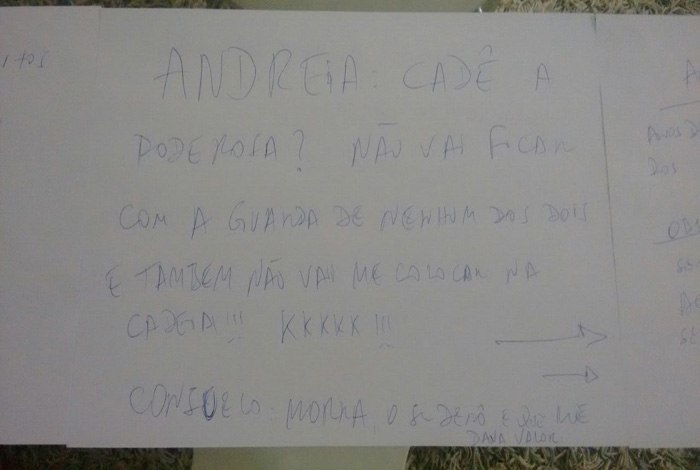 ANDREIA: CADÊ A
PODEROSA? NÃO VAI FICAR
COM A GUARDA DE NENHUM DOS DOIS
E TAMBEM NÃO VAI ME COLOCAR NA
CADEIA!!! KKKKK!!!
CONSUELO: MORRA, O E ME
DAVA VALOR
DOS